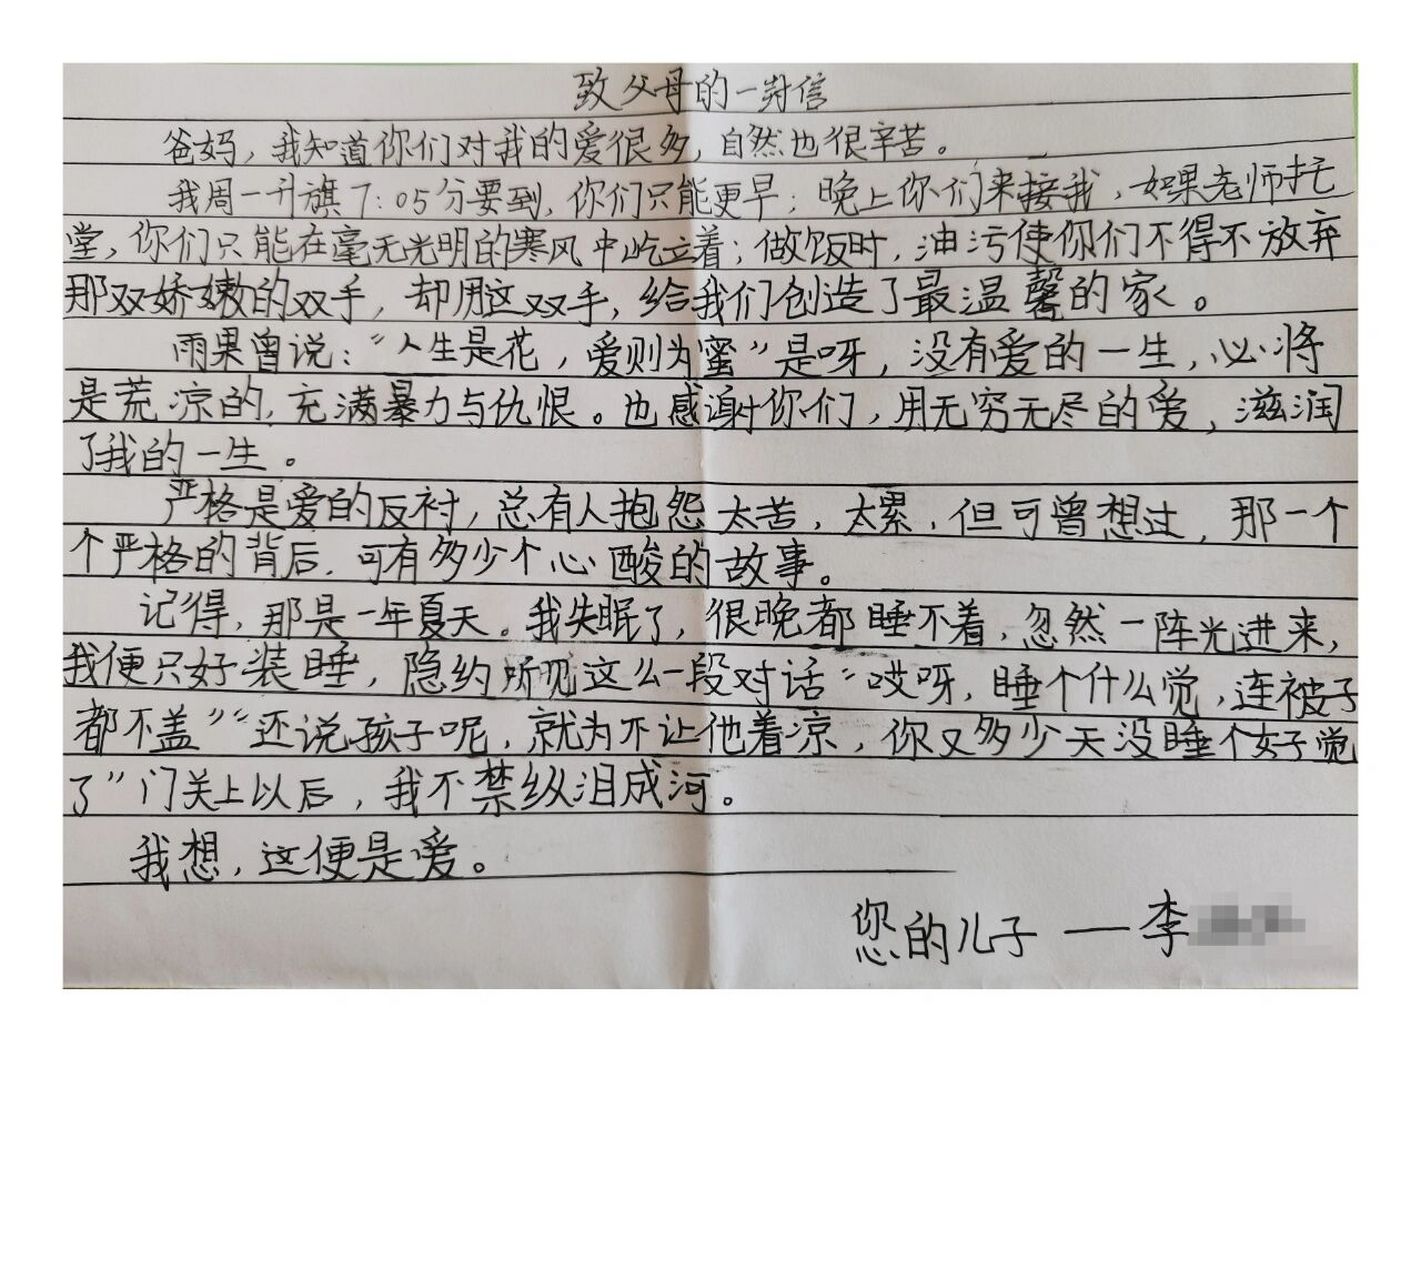 致父母的一封信
爸妈，我知道你们对我的爱很多，自然也很辛苦。
我周一升旗7:05分要到，你们只能更早；晚上你们来接我，如果老师托
堂，你们只能在毫无光明的寒风中屹立着；做饭时，油污使你们不得不放弃
那双娇嫩的双手，却用这双手，给我们创造了最温馨的家。
雨果曾说：“人生是花，爱则为蜜”是呀，没有爱的一生，必将
是荒凉的，充满暴力与仇恨。也感谢你们，用无穷无尽的爱，滋润
了我的一生。
严格是爱的反衬，总有人抱怨太苦，太累，但可曾想过，那一个
个严格的背后，可有多少个心酸的故事。
记得，那是一年夏天。我失眠了，很晚都睡不着，忽然一阵光进来，
我便只好装睡，隐约听见这么一段对话“哎呀，睡个什么觉，连被子
都不盖”“还说孩子呢，就为不让他着凉，你又多少天没睡个好觉
了”门关上以后，我不禁纵泪成河。
我想，这便是爱。
您的儿子 —李